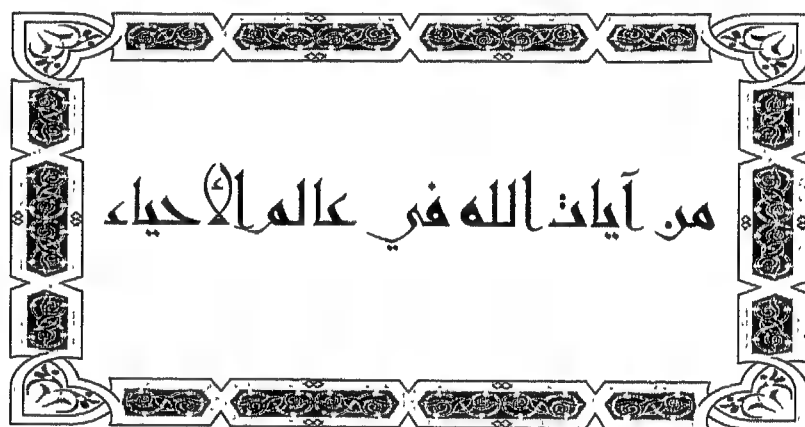 من آيات الله في عالم الأحياء